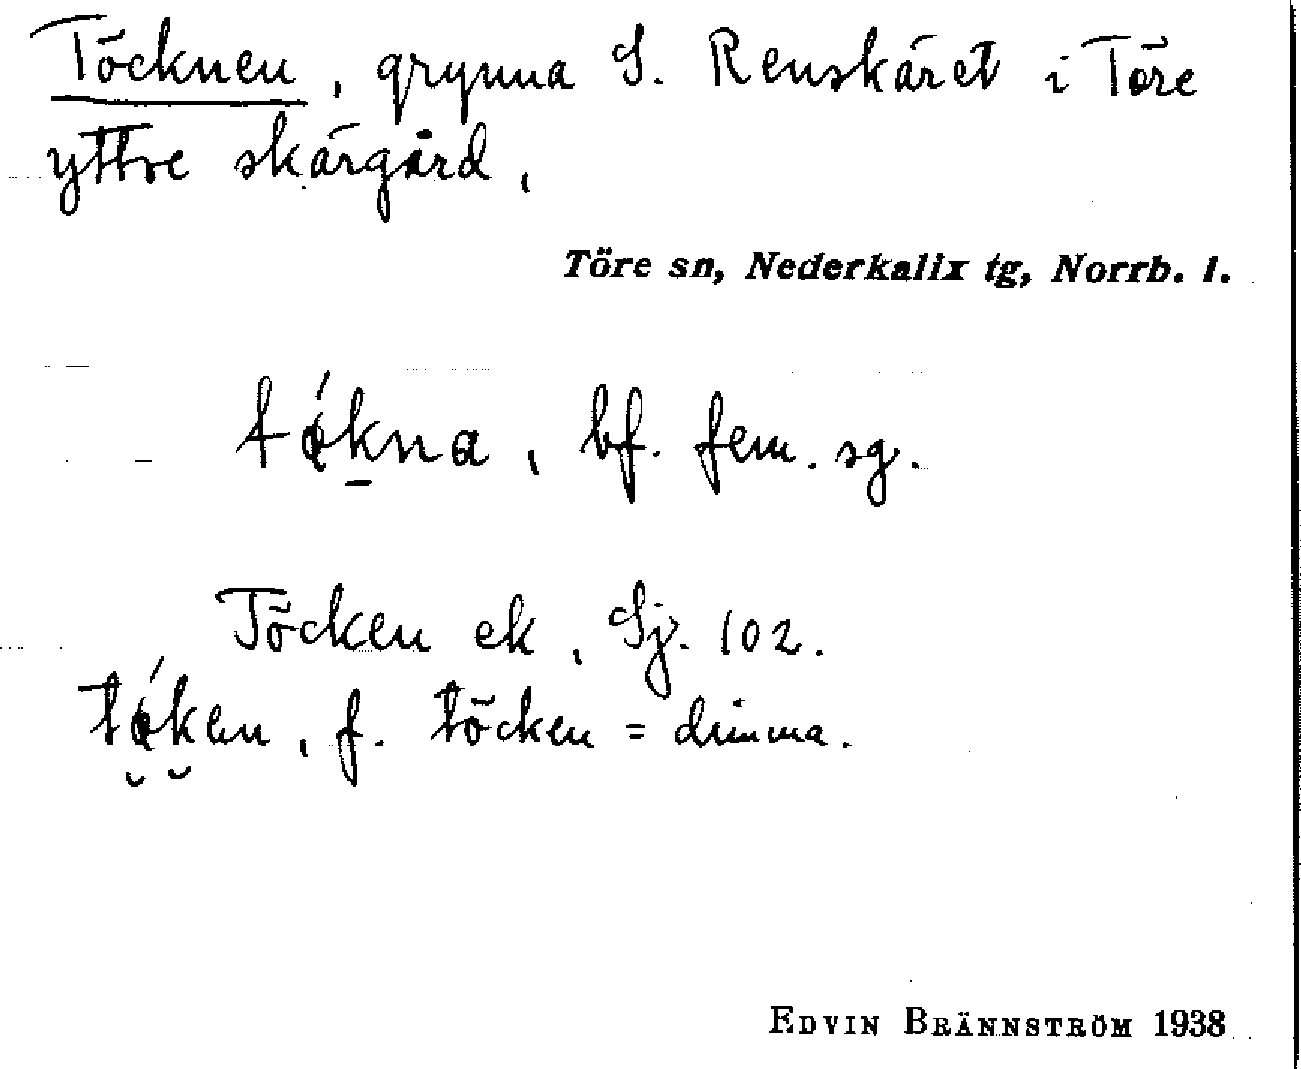 Töcknen, grynna S. Renskäret i Töre
yttre skärgård,
Töre sn, Nederkalix tg, Norrb. l.
tǿkna, bf. fem. sg.
Töcken ek, Sj. 102.
tǿken, f. töcken = dimma.
EDVIN BRÄNNSTRÖM 1938